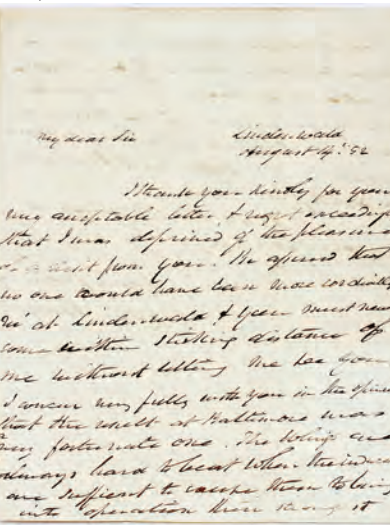 My dear Sir Lindenwald
August 14th 52
I thank you kindly for your
very acceptable letter, & regret exceedingly
that I was deprived of the pleasure
of a visit from you. Be assured that
no one would have been more cordially
at Lindenwald & you must never
come within striking distance of
me without letting me see you
I concur very fully with you in the opinion
that the result at Baltimore was
very fortunate one. The Whigs are
always hard to beat when
are sufficient to cause them to bring
into operation their strength